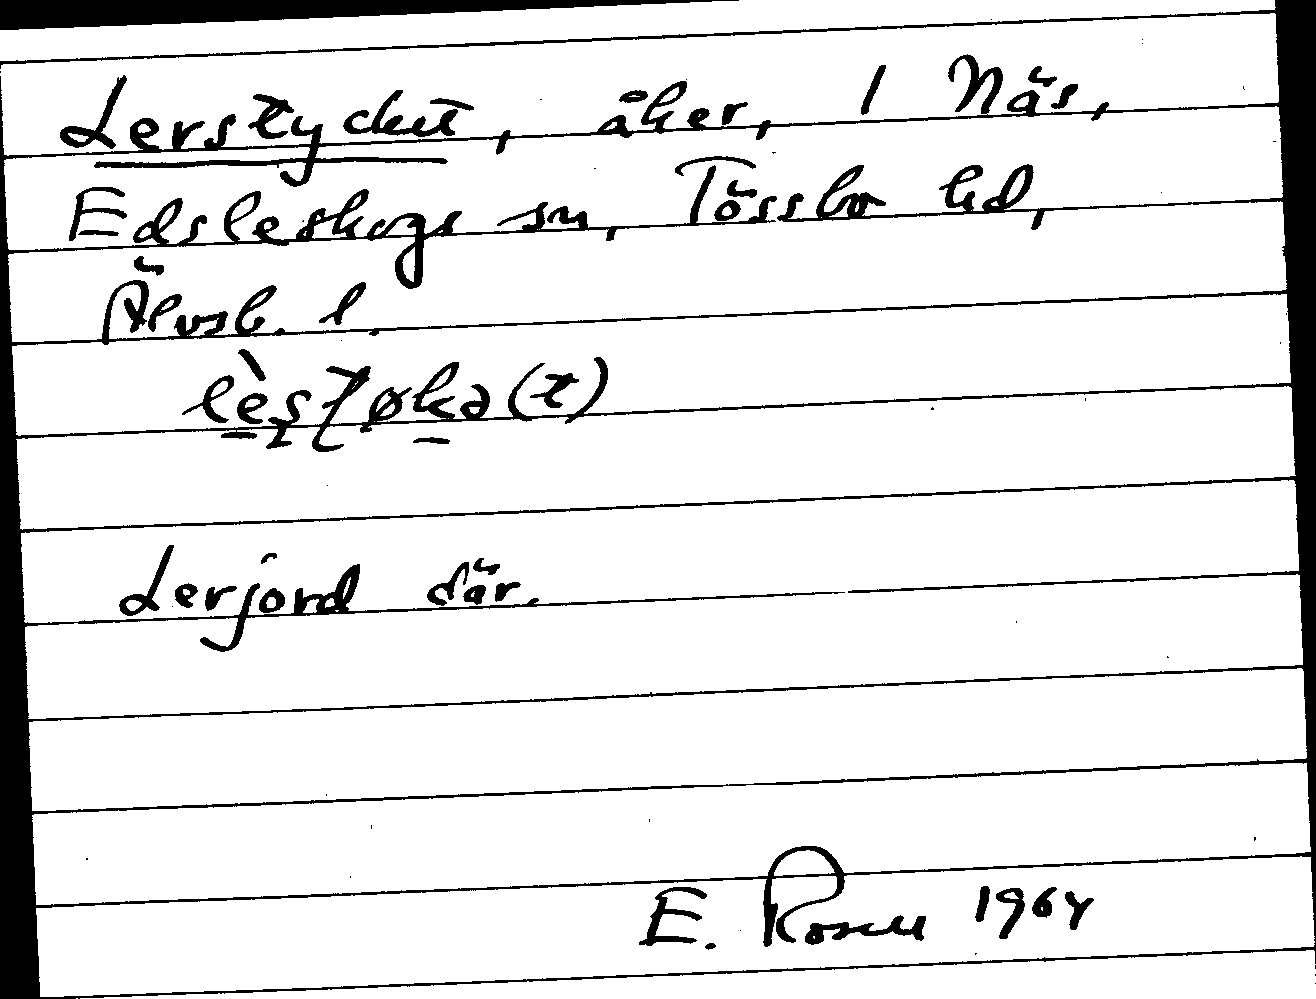 Lerstycket, åker, 1 Näs,
Edsleskogs sn, Tössbo hd,
Älvsb. l.
lèsʈøkə(t)
Lerjord där.
E. Rosell 1964